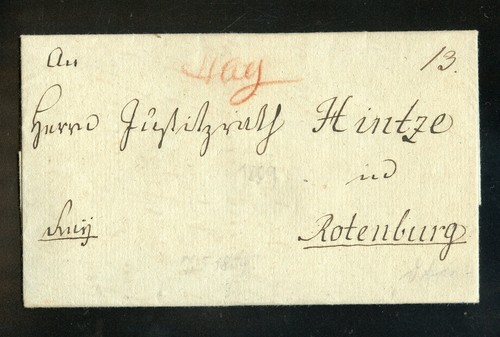 An
Hag
13.
Herrn Justitzrath Hintze
in
1809
Rotenburg